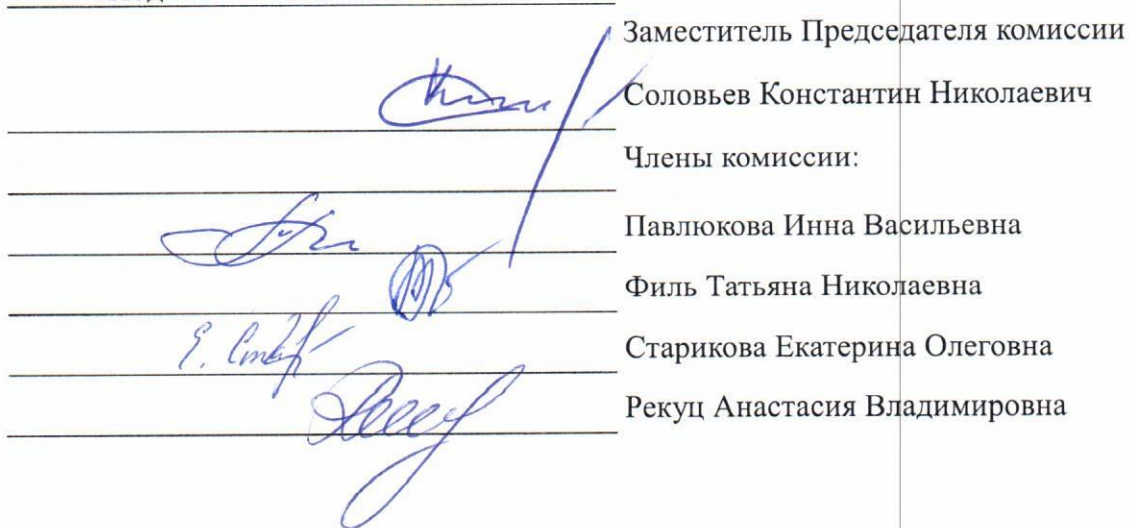 Заместитель Председателя комиссии
Соловьев Константин Николаевич
Члены комиссии:
Павлюкова Инна Васильевна
Филь Татьяна Николаевна
Е. Стар
Старикова Екатерина Олеговна
Рекуц Анастасия Владимировна